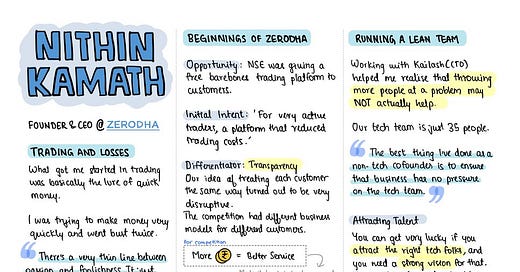 NITHIN
KAMATH
FOUNDER & CEO @ ZERODHA
TRADING AND LOSSES
What got me started in trading
was basically the lure of quick
money.
I was trying to make money very
quickly and went bust twice.
There's a very thin line between
passion and foolishness. It just
BEGINNINGS OF ZERODHA
Opportunity: NSE was giving a
free barebones trading platform to
customers.
Initial Intent: 'For very active
traders, a platform that reduced
trading costs.'
Differentiator: Transparency
Our idea of treating each customer
the same way turned out to be very
disruptive.
The competition had different business
models for different customers.
for competition
More ₹ = Better Service
RUNNING A LEAN TEAM
Working with Kailash(CTO)
helped me realise that throwing
more people at a problem may
NOT actually help.
Our tech team is just 35 people.
The best thing I've done as a
non-tech cofounder is to ensure
that business has no pressure
on the tech team.
Attracting Talent
You can get very lucky if you
attract the right tech folks, and
you need a strong vision for that.